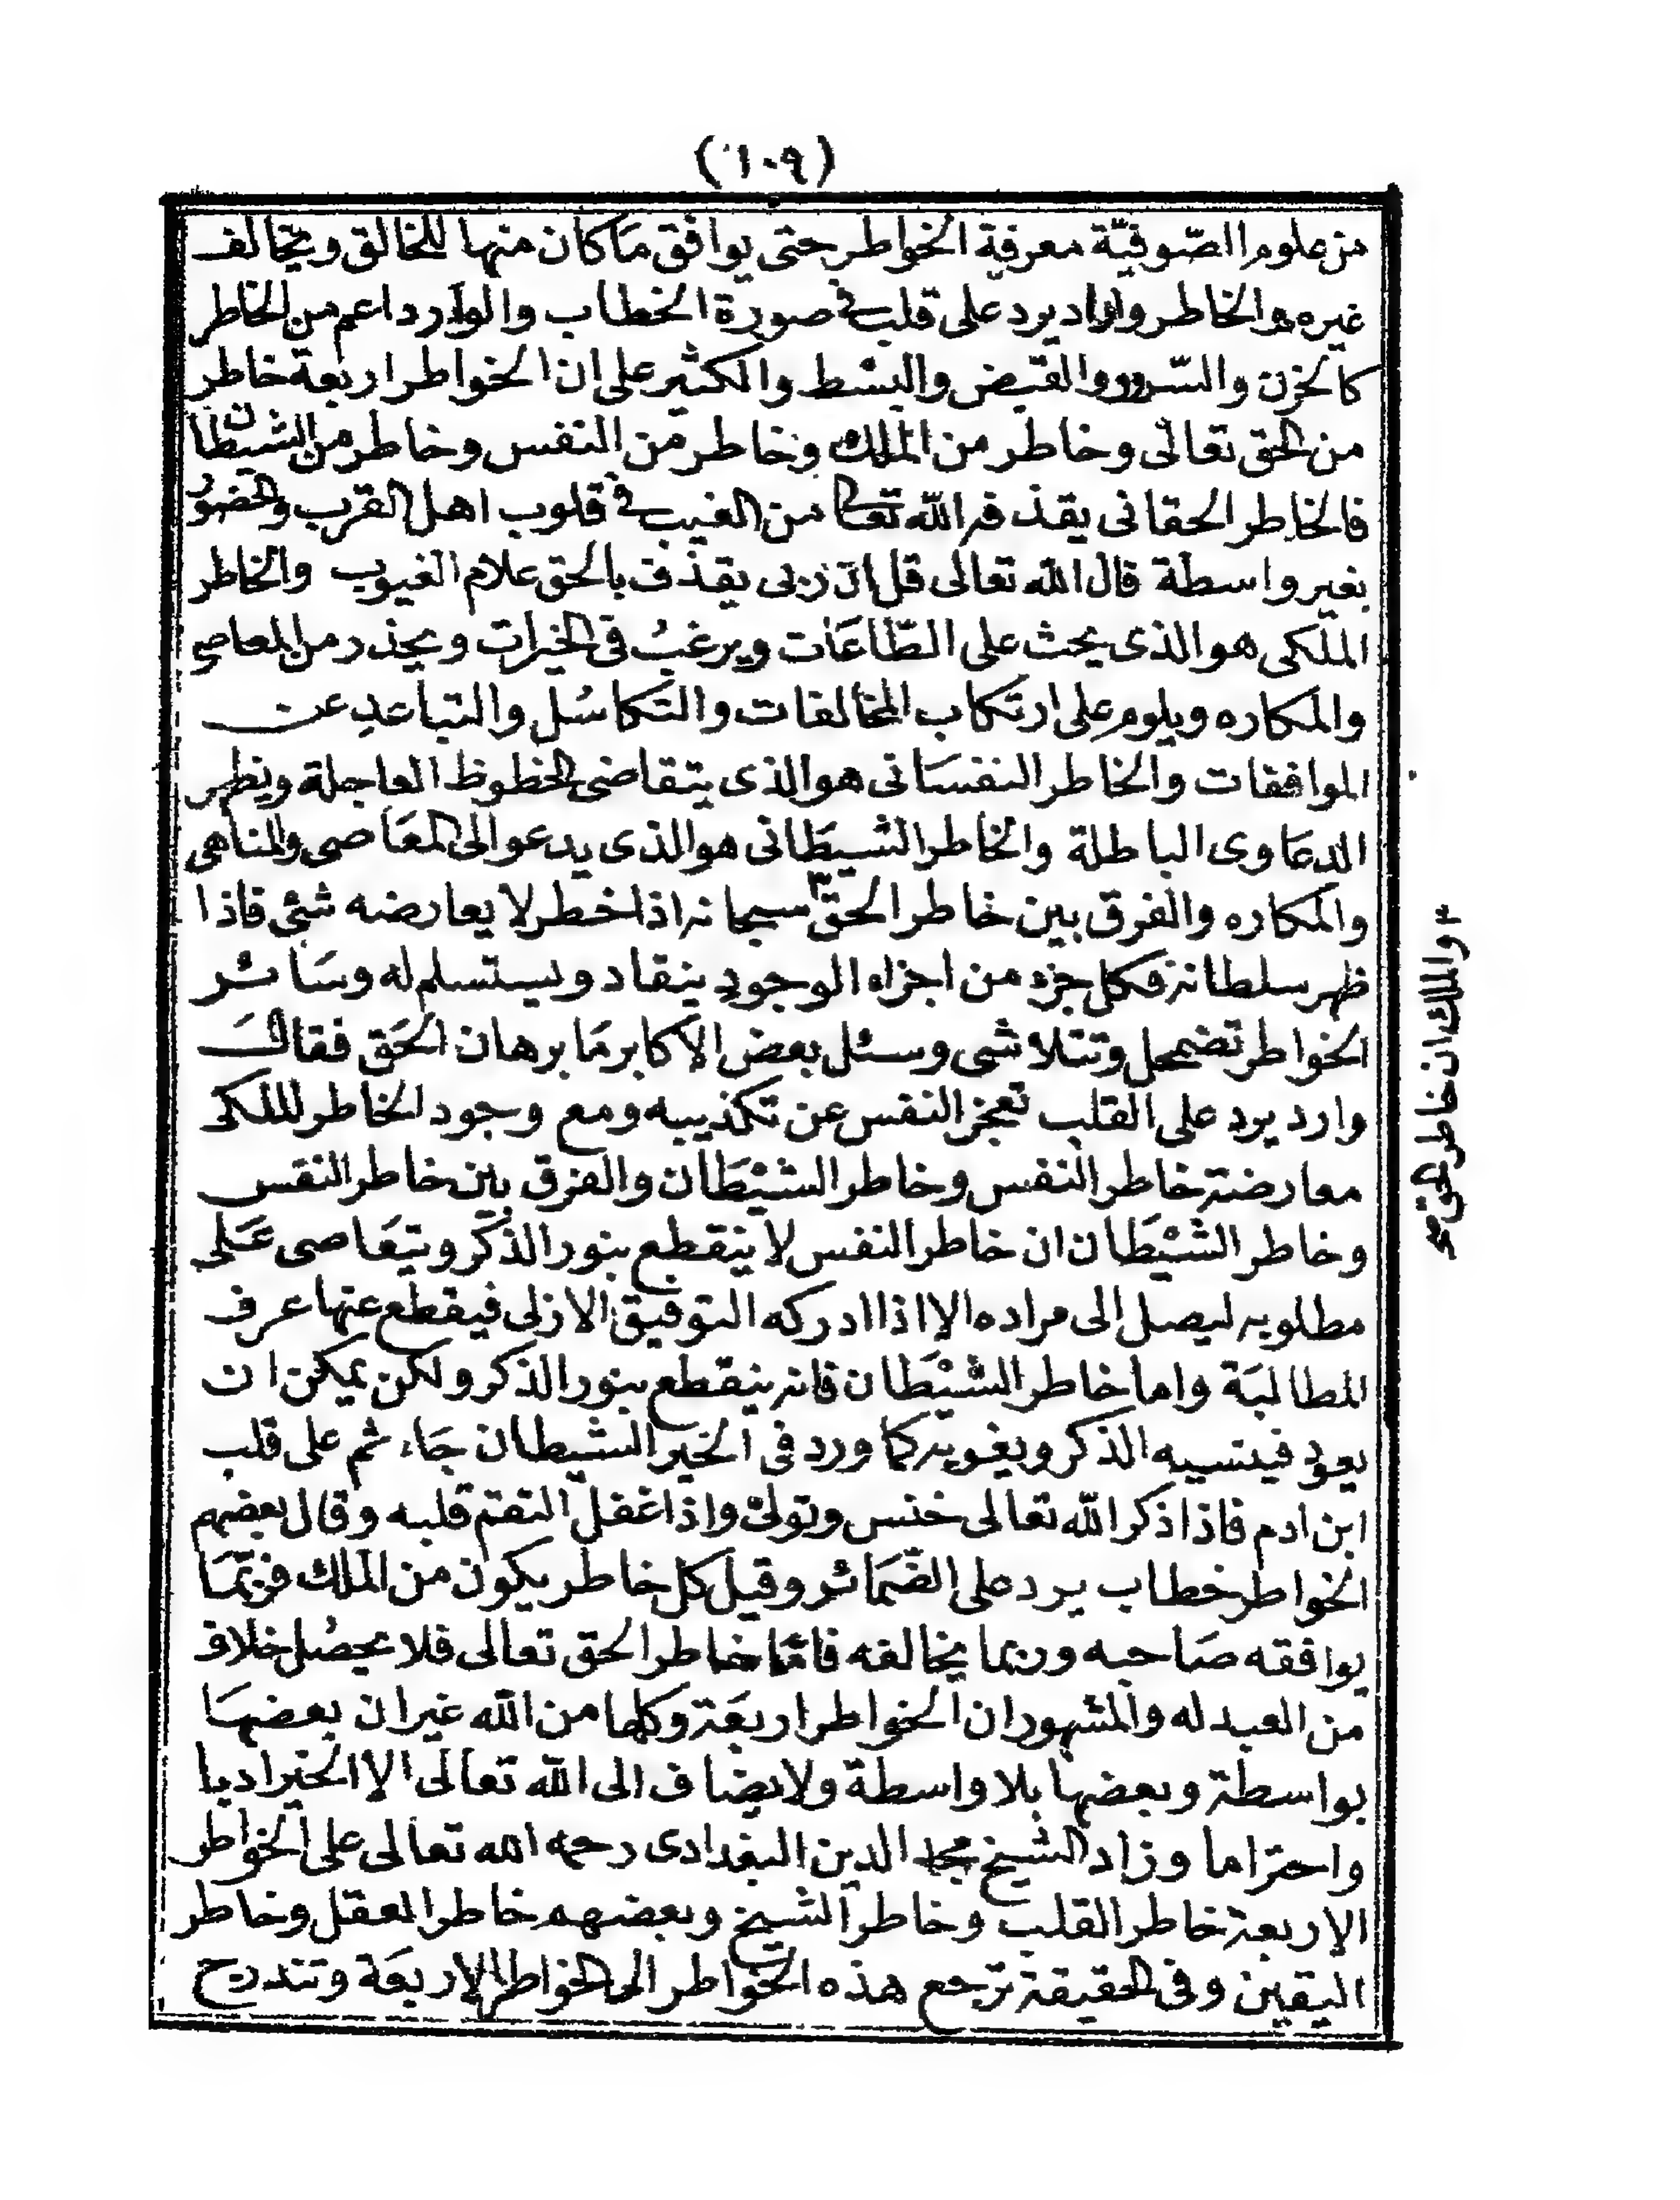 (١٠٩)
من علوم الصّوفيّة معرفة الخواطر حتى يوافق مَا كان منها للخالق ويخالف
غيره هو الخاطر وارد يرد على قلب فى صورة الخطاب والوارد اعم من الخاطر
كالحزن والسّرور والقبض والبسط والكثير على ان الخواطر اربعة خاطر
من الحق تعالى وخاطر من الملك وخاطر من النفس وخاطر من الشيطان
فالخاطر الحقانى يقذفه الله تعالى من الغيب فى قلوب اهل القرب والحضور
بغير واسطة قال الله تعالى قل ان ربى يقذف بالحق علام الغيوب والخاطر
الملكى هو الذى يحث على الطّاعَات ويرغبُ فى الخيرات ويحذر من المعاصى
والمكاره ويلوم على ارتكاب المخالفات والتكاسُل والتباعدِ عن
الموافقات والخاطر النفسَانى هو الذى يتقاضى الحظوظ العاجلة ويظهر
الدعَاوى الباطلة والخاطر الشيطَانى هو الذى يدعو الى المعَاصى والمناهى
والمكاره والفرق بين خاطر الحقّ٣ سبحانه اذا خطر لا يعارضه شئى فاذا
ظهر سلطانه فكل جزء من اجزاء الوجودِ ينقاد ويستسلم له وسَائر
الخواطر تضمحل وتتلاشى وسئل بعض الاكابر مَا برهان الحَق فقالَ
وارد يرد على القلب تعجز النفس عن تكذيبه ومع وجود الخاطر الملكى
معارضة خاطر النفس وخاطر الشيْطَان والفرق بين خاطر النفس
وخاطر الشيْطَان ان خاطر النفس لا ينقطع بنور الذكر ويتقَاضى عَلى
مطلوبه ليصل الى مراده الا اذا ادركه التوفيق الازلى فيقطع عنها عرف
المطالبَة واما خاطر الشيْطَان فانه ينقطع بنور الذكر ولكن يمكن ان
يعود فينسيه الذكر ويغويه كما ورد فى الخبر الشيطان جَاء ثم على قلب
ابن ادم فاذا ذكر الله تعالى خنس وتولىْ واذا غفل التقم قلبه وقال بعضهم
الخواطر خطاب يرد على الضّمَائر وقيل كل خاطر يكون من الملك فربّمَا
يوافقه صَاحبه وربما يخالفه فامّا خاطر الحق تعالى فلا يحصُل خلاف
من العبد له والمشهور ان الخواطر اربعَة وكلها من الله غير ان بعضهَا
بواسطة وبعضها بلا واسطة ولا يضاف الى الله تعالى الا الخير ادبا
واحتراما وزاد الشيخ مجد الدين البغدادى رحمه الله تعالى على الخواطر
الاربعة خاطر القلب وخاطر الشيخ وبعضهم خاطر العقل وخاطر
اليقين وفى الحقيقة ترجع هذه الخواطر الى الخواطر الاربعَة وتندرج
٣ والملك ان خاطر الحق صح